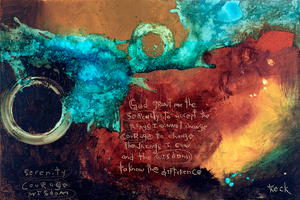 God grant me the
serenity to accept the
things I cannot change
courage to change
the things I can
and the wisdom
to know the difference
serenity
courage
wisdom
Keck